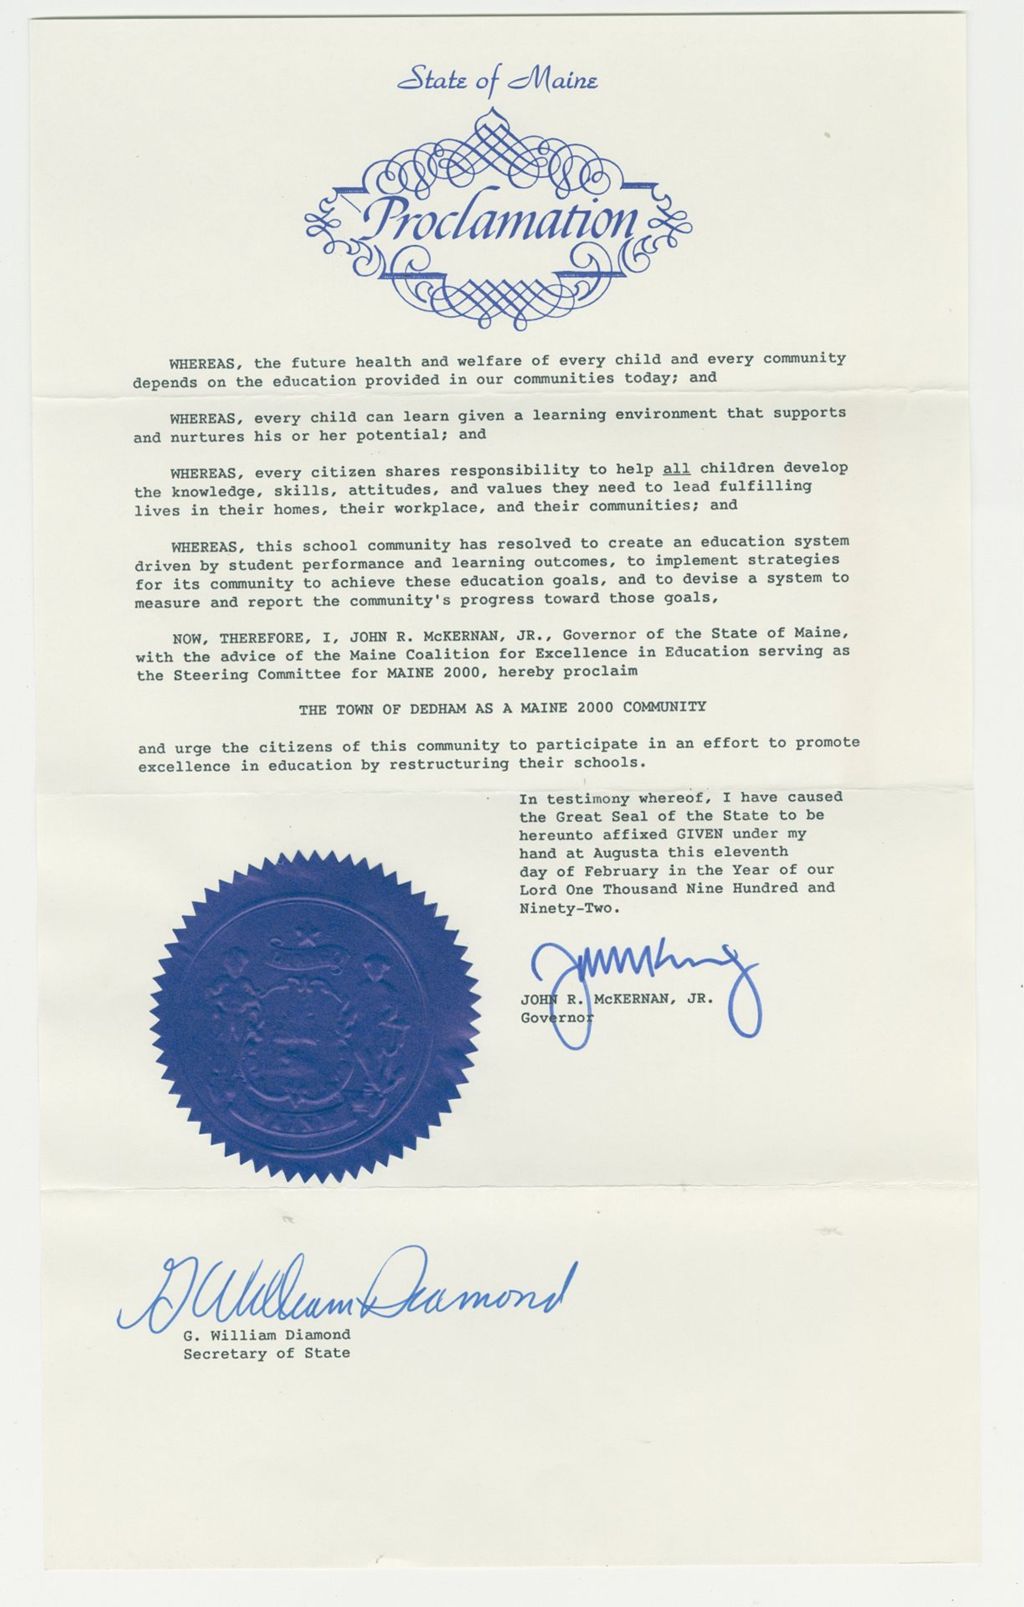 State of Maine
Proclamation
WHEREAS, the future health and welfare of every child and every community
depends on the education provided in our communities today; and
WHEREAS, every child can learn given a learning environment that supports
and nurtures his or her potential; and
WHEREAS, every citizen shares responsibility to help all children develop
the knowledge, skills, attitudes, and values they need to lead fulfilling
lives in their homes, their workplace, and their communities; and
WHEREAS, this school community has resolved to create an education system
driven by student performance and learning outcomes, to implement strategies
for its community to achieve these education goals, and to devise a system to
measure and report the community's progress toward those goals,
NOW, THEREFORE, I, JOHN R. McKERNAN, JR., Governor of the State of Maine,
with the advice of the Maine Coalition for Excellence in Education serving as
the Steering Committee for MAINE 2000, hereby proclaim
THE TOWN OF DEDHAM AS A MAINE 2000 COMMUNITY
and urge the citizens of this community to participate in an effort to promote
excellence in education by restructuring their schools.
In testimony whereof, I have caused
the Great Seal of the State to be
hereunto affixed GIVEN under my
hand at Augusta this eleventh
day of February in the Year of our
Lord One Thousand Nine Hundred and
Ninety-Two.
JOHN R. McKERNAN, JR.
Governor
MAINE
G William Diamond
G. William Diamond
Secretary of State